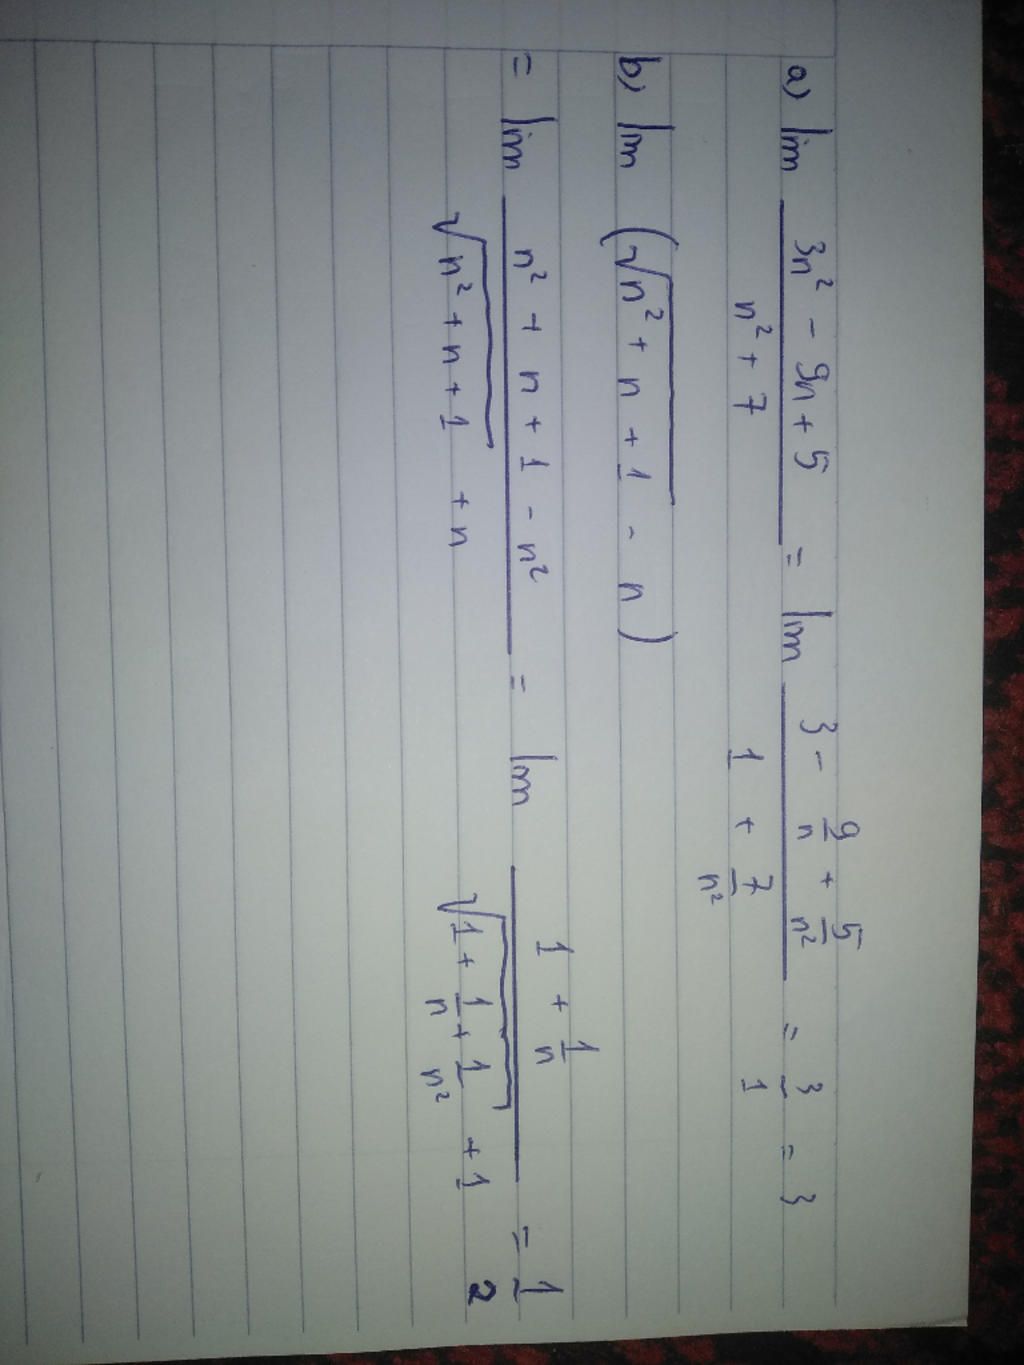 a) lim (3n² - 9n + 5)/(n² + 7) = lim (3 - 9/n + 5/n²)/(1 + 7/n²) = 3/1 = 3
b) lim (√(n² + n + 1) - n)
= lim (n² + n + 1 - n²)/(√(n² + n + 1) + n) = lim (1 + 1/n)/(√(1 + 1/n + 1/n²) + 1) = 1/2